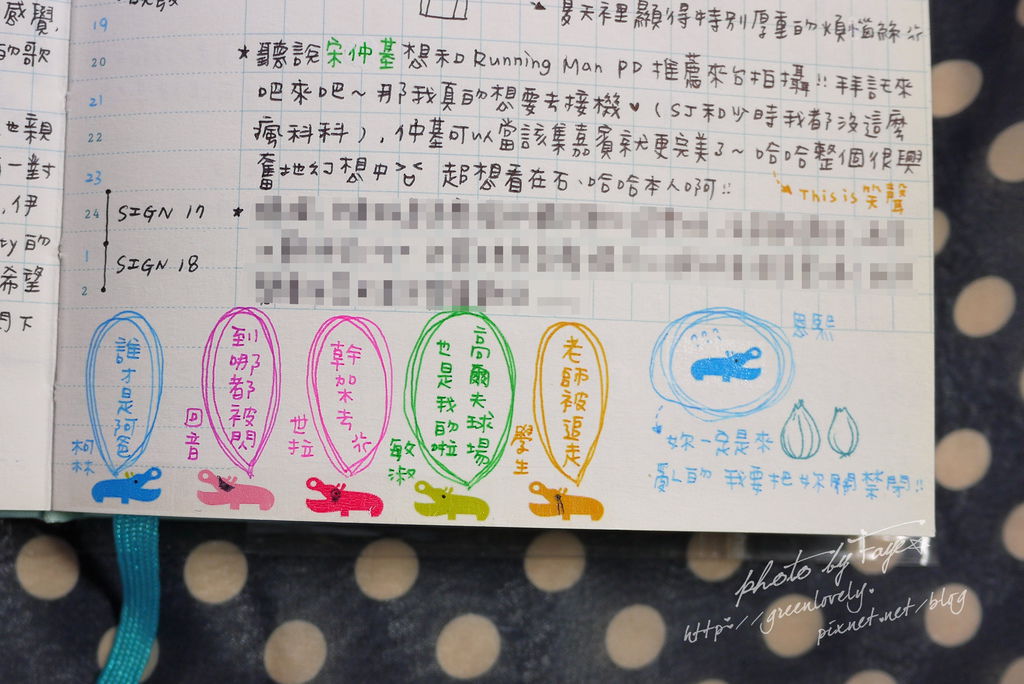 感覺,
的歌
也親
一對
,伊
ty的
希望
門下
19
20
21
22
23
24
1
2
夏天裡顯得特別厚重的煩惱絲
★聽說宋仲基想和Running Man PD推薦來台拍攝!!拜託來
吧來吧~那我真的想要去接機♥(SJ和少時我都沒這麼
瘋科科),仲基可以當該集嘉賓就更完美了~哈哈整個很興
奮地幻想中 起想看在石、哈哈本人啊!!
This is 笑聲
SIGN 17 ★
SIGN 18
誰才是阿爸
柯林
到哪都被門
回音
幹架去
世拉
高爾夫球場
也是我的啦
敏淑
老師被追走
學生
恩熙
妳一定是來
亂的 我要把妳關禁閉!!
photo by Faye
http://greenlovely.
pixnet.net/blog